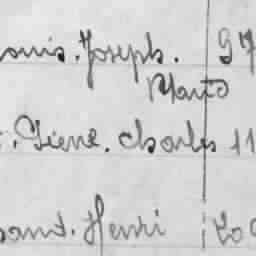 ouis. Joseph. 97
Mario
. Pierre. Charles 11
sant. Henri 20